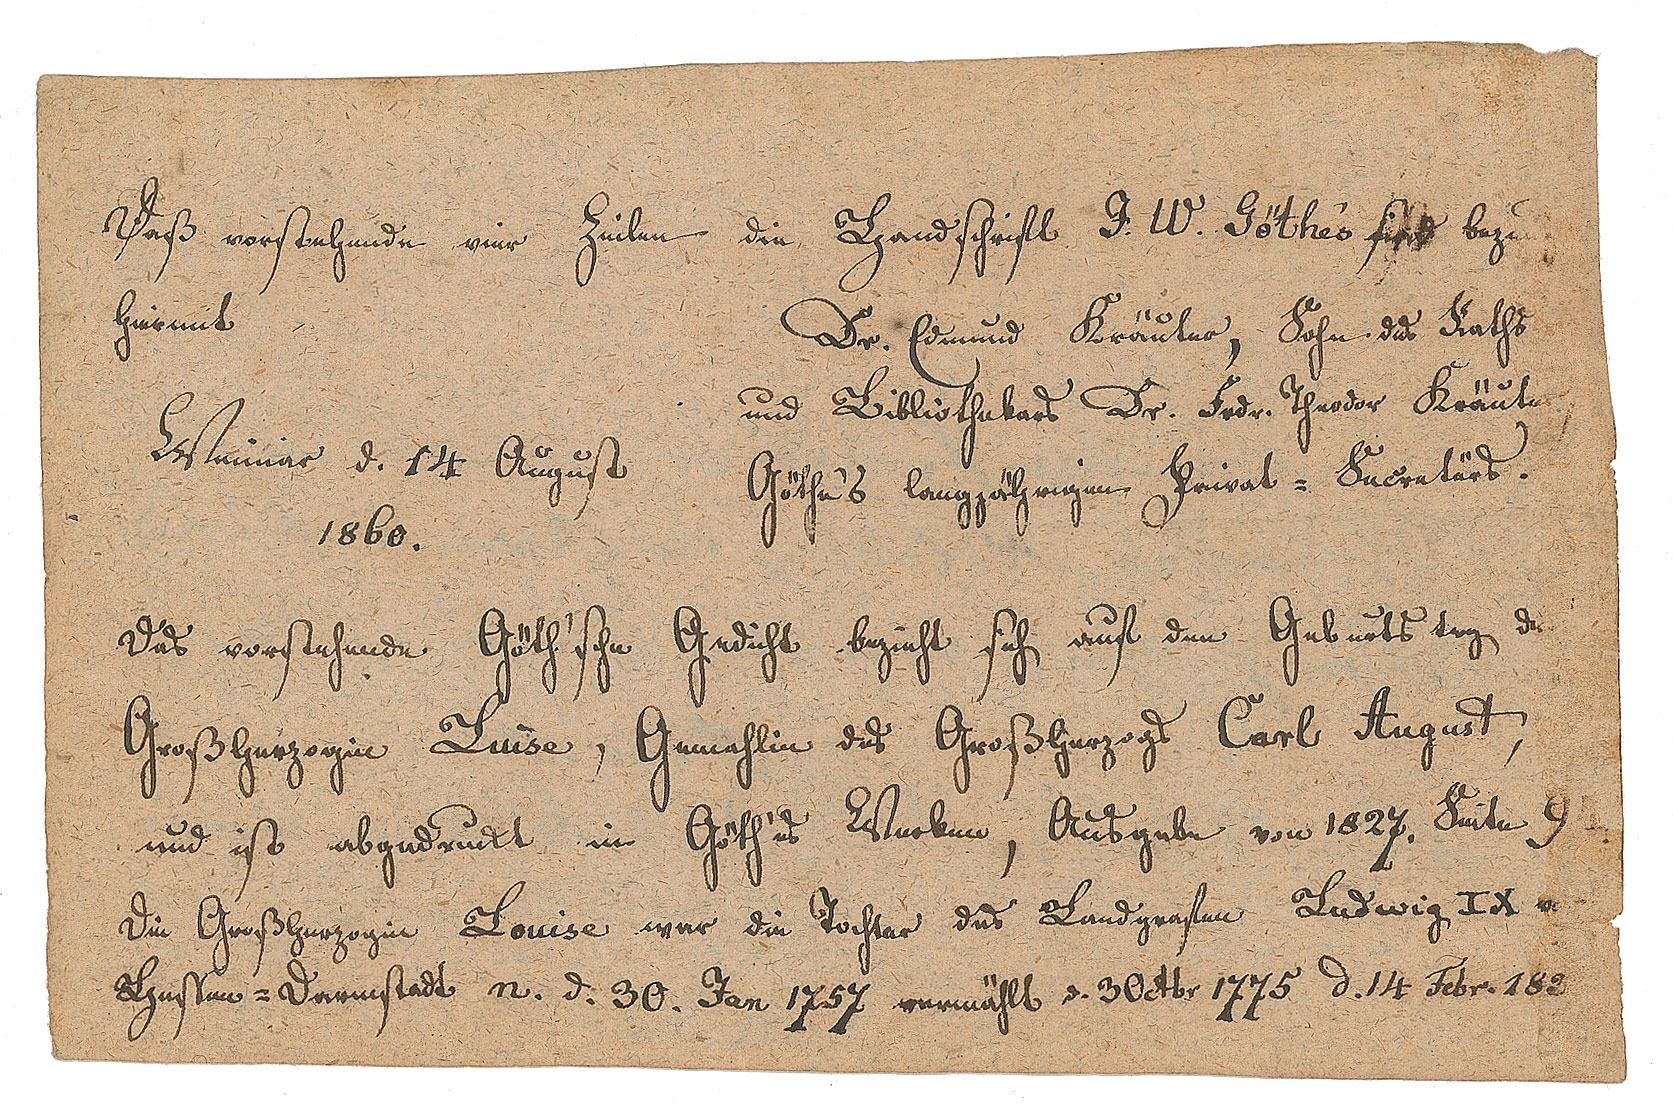 Daß vorstehende vier Zeilen die Handschrift J. W. Göthes sind bezeu
hiermit
Dr. Edmund Kräuter, Sohn des Raths
und Bibliothekars Dr. Frdr. Theodor Kräute
Weimar d. 14 August
Göthe's langjährigen Privat=Secretärs.
1860.
Das vorstehende Göth'sche Gedicht bezieht sich auf den Geburtstag de
Großherzogin Luise, Gemahlin des Großherzogs Carl August,
und ist abgedruckt in Göth'es Werken, Ausgabe von 1827. Seite 9
Die Großherzogin Louise war die Tochter des Landgrafen Ludwig IX v
Hessen=Darmstadt n. d. 30. Jan 1757 vermählt d. 3 Octbr 1775 d. 14 Febr. 183